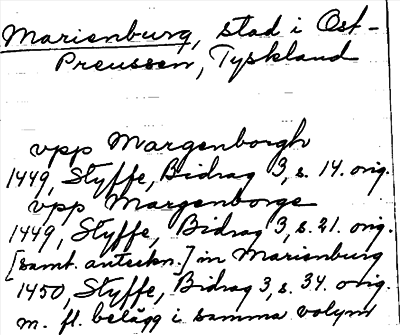 Marienburg, stad i Ost-
Preussen, Tyskland
upp Margenborgh
1449, Styffe, Bidrag 3, s. 14. orig.
upp Margenborge
1449, Styffe, Bidrag 3, s. 21. orig.
[samt. anteckn.] in Marienburg
1450, Styffe, Bidrag 3, s. 34. orig.
m. fl. belägg i samma volym